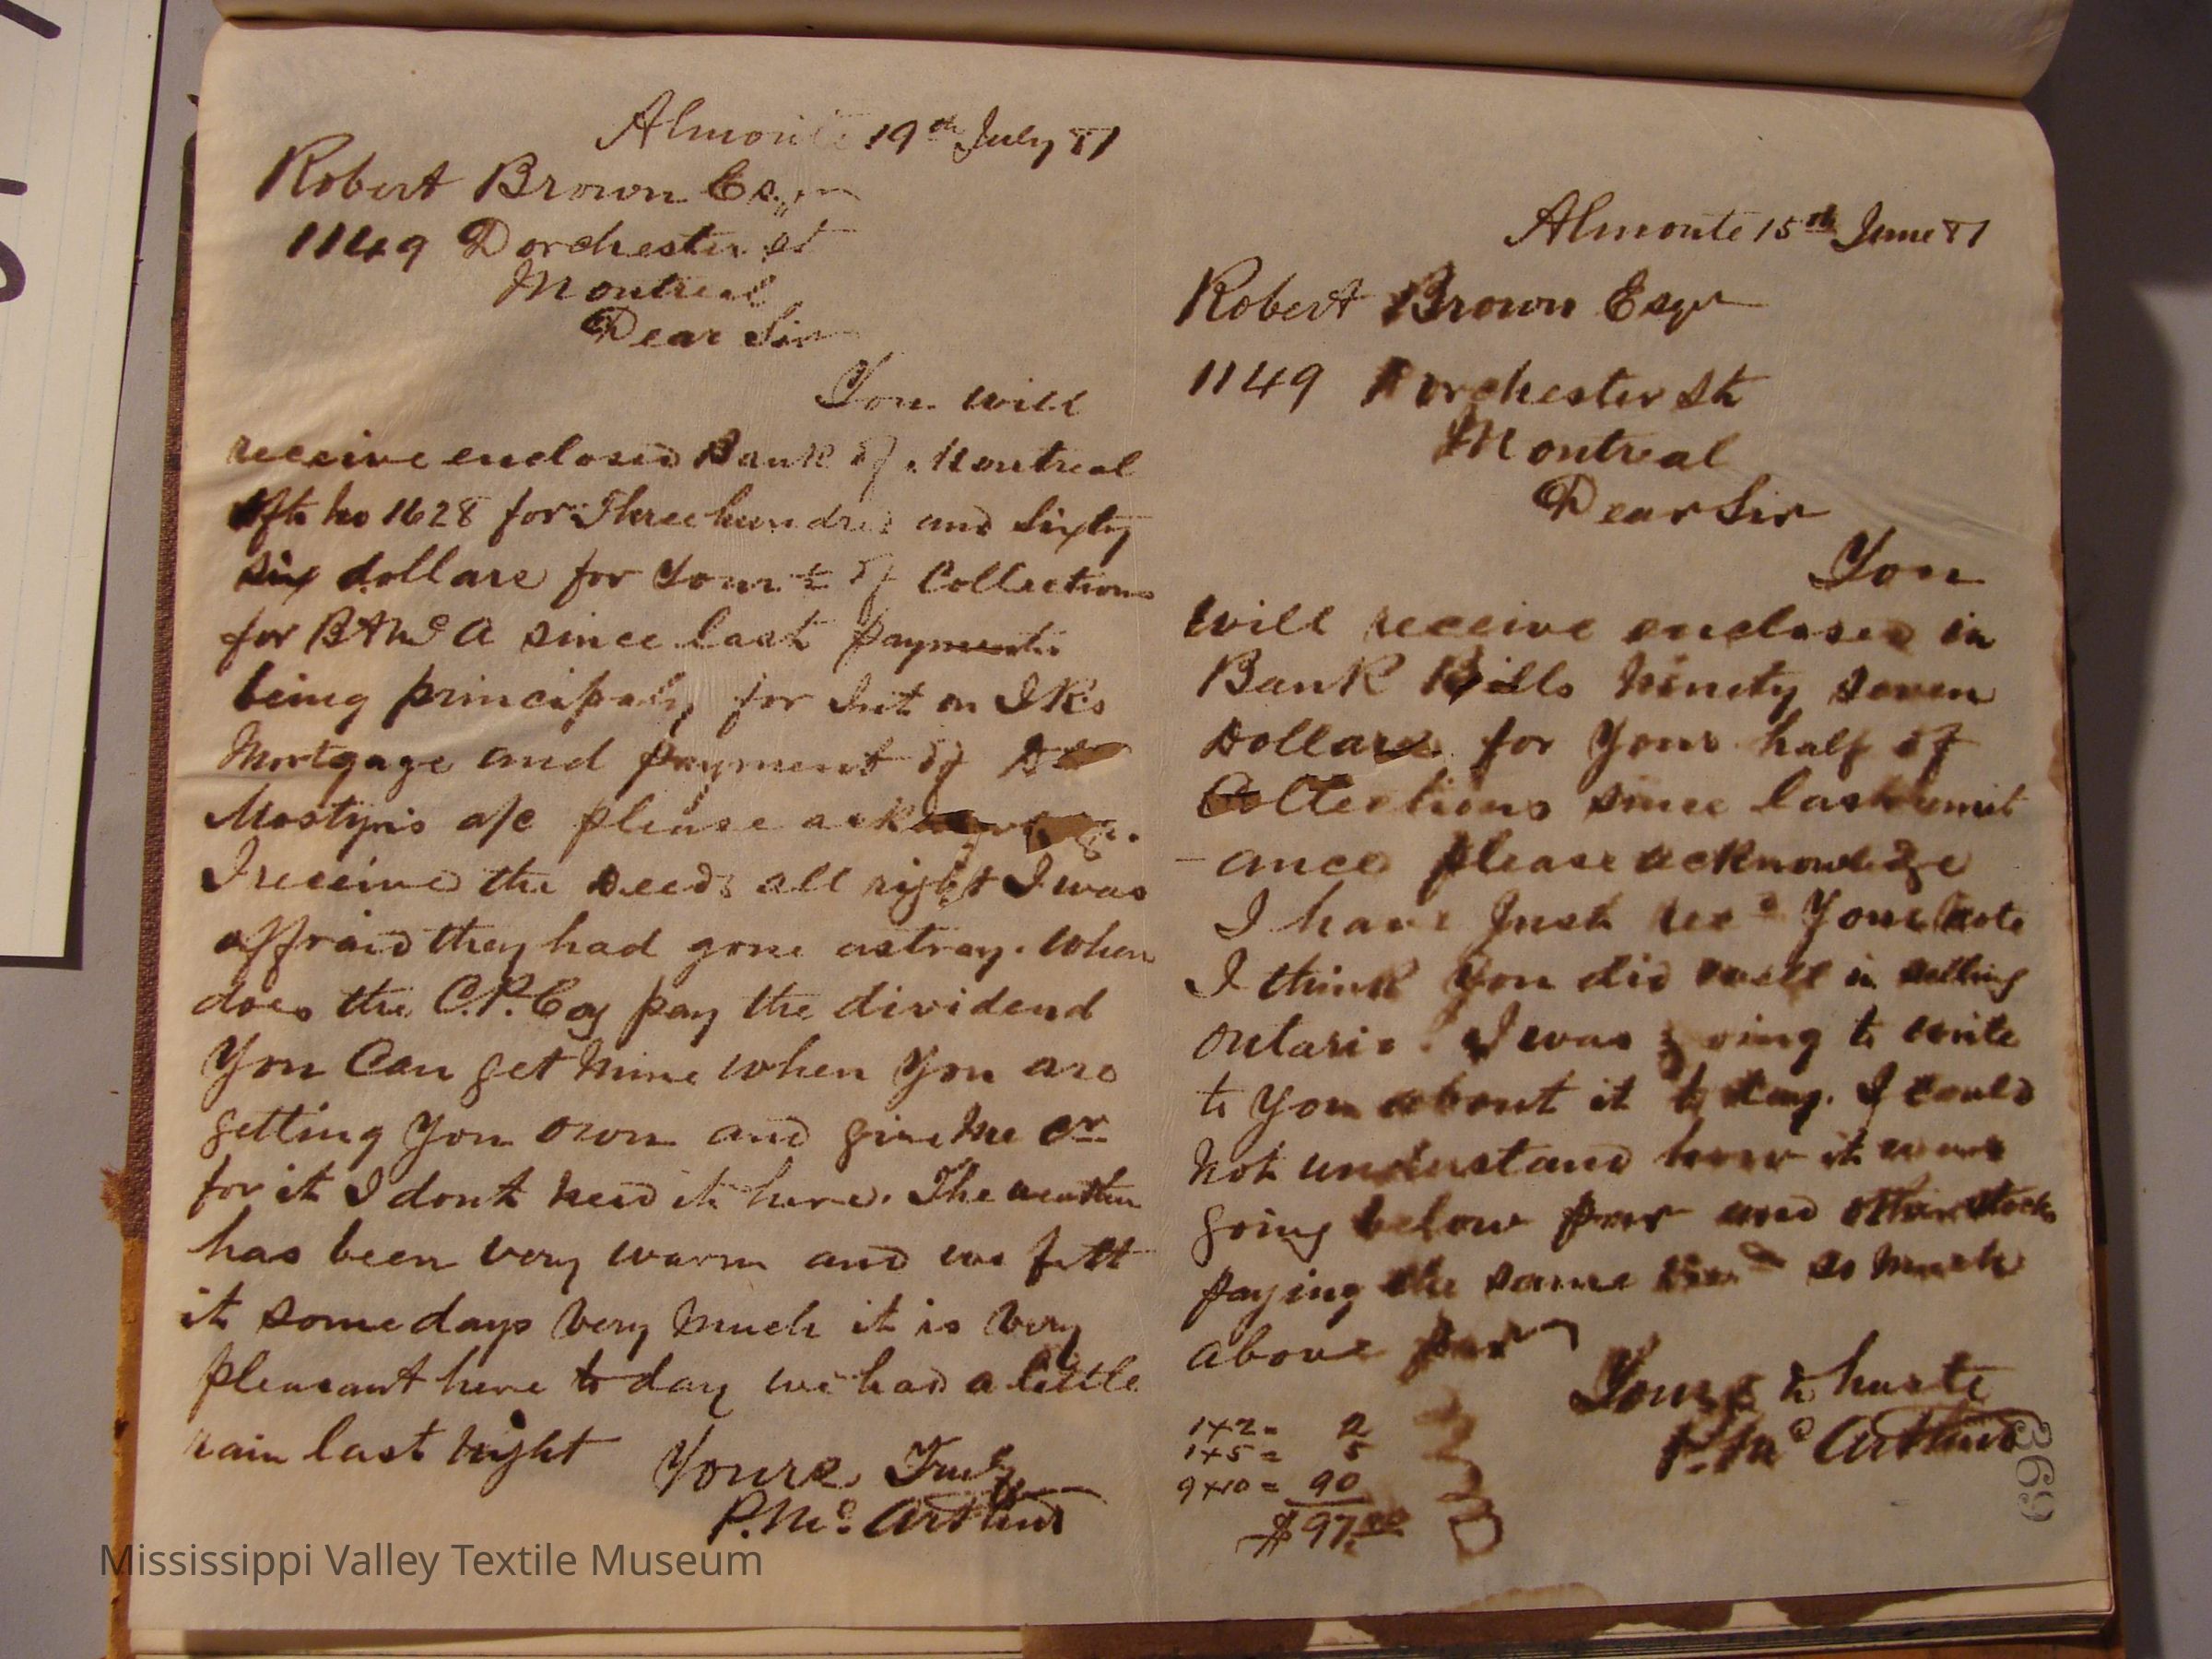 Almonte 19th July 81
Robert Brown Esqr
1149 Dorchester St
Montreal
Dear Sir
You will
receive enclosed Bank of Montreal
dft no 1628 for Three hundred and Sixty
Six dollars for Your ½ of Collections
for B & McA since last payments
being principaly for Int on
Mortgage and payment of
Mostyn's a/c please
I received the Deeds all right I was
affraid they had gone astray. When
does the C.P. Coy pay the dividend
You Can get mine when You are
getting You own and give me Cr
for it I dont need it here. The weather
has been very warm and we felt
it some days Very Much it is Very
pleasant here to day we had a little
rain last night
Yours Truly
P. Mc Arthur
Almonte 15th June 81
Robert Brown Esqr
1149 Dorchester St
Montreal
Dear Sir
You
will receive enclosed in
Bank Bills Ninety Seven
Dollars for Your half of
Collections since last remit
-ance please acknowledge
I have Just recd Your note
I think You did well in selling
Ontario. I was going to write
to You about it to day. I could
not understand how it was
going below par and other stocks
paying the same so much
above par
Yours in haste
P. Mc Arthur
1x2= 2
1x5= 5
9x10= 90
$97.00
369
Mississippi Valley Textile Museum